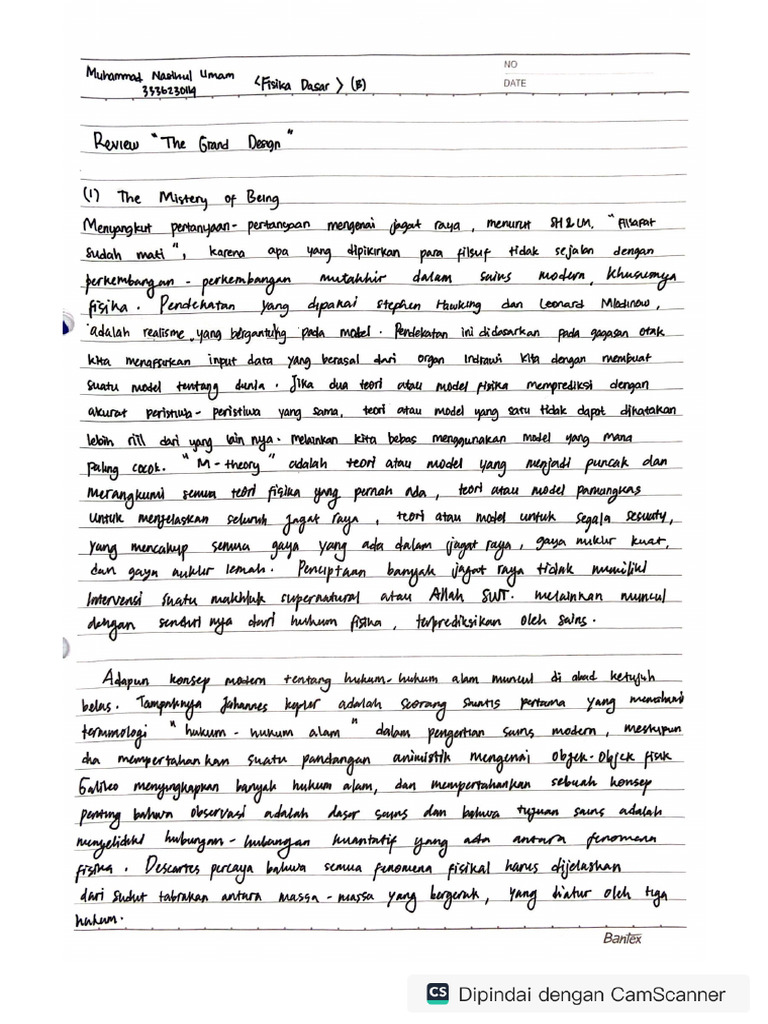 Muhammad Nasihul Umam <Fisika Dasar> (B)
NO
353623014
DATE
Review "The Grand Design"
(1) The Mistery of Being
Menyangkut pertanyaan-pertanyaan mengenai jagat raya, menurut SH & LM, "Filsafat
sudah mati", karena apa yang dipikirkan para filsuf tidak sejalan dengan
perkembangan-perkembangan mutakhir dalam sains modern, khususnya
fisika. Pendekatan yang dipakai Stephen Hawking dan Leonard Mlodinow,
adalah realisme yang bergantung pada model. Pendekatan ini didasarkan pada gagasan otak
kita menafsirkan input data yang berasal dari organ indrawi kita dengan membuat
suatu model tentang dunia. Jika dua teori atau model fisika memprediksi dengan
akurat peristiwa-peristiwa yang sama, teori atau model yang satu tidak dapat dikatakan
lebih riil dari yang lain nya. melainkan kita bebas menggunakan model yang mana
paling cocok. "M-theory" adalah teori atau model yang menjadi puncak dan
merangkumi semua teori fisika yang pernah ada, teori atau model pamungkas
untuk menjelaskan seluruh jagat raya, teori atau model untuk segala sesuatu,
yang mencakup semua gaya yang ada dalam jagat raya, gaya nuklir kuat,
dan gaya nuklir lemah. Penciptaan banyak jagat raya tidak memiliki
intervensi suatu makhluk supernatural atau Allah SWT. melainkan muncul
dengan sendirinya dari hukum fisika, terprediksikan oleh sains.
Adapun konsep modern tentang hukum-hukum alam muncul di abad ketujuh
belas. Tampaknya Johannes kepler adalah seorang saintis pertama yang memahami
terminologi "hukum-hukum alam" dalam pengertian sains modern, meskipun
dia mempertahankan suatu pandangan animistik mengenai objek-objek fisik
Galileo menyingkapkan banyak hukum alam, dan mempertahankan sebuah konsep
penting bahwa observasi adalah dasar sains dan bahwa tujuan sains adalah
menyelidiki hubungan-hubungan kuantatif yang ada antara fenomena
fisika. Descartes percaya bahwa semua fenomena fisikal harus dijelaskan
dari sudut tabrakan antara massa-massa yang bergerak, yang diatur oleh tiga
hukum.
Bantex
CS Dipindai dengan CamScanner